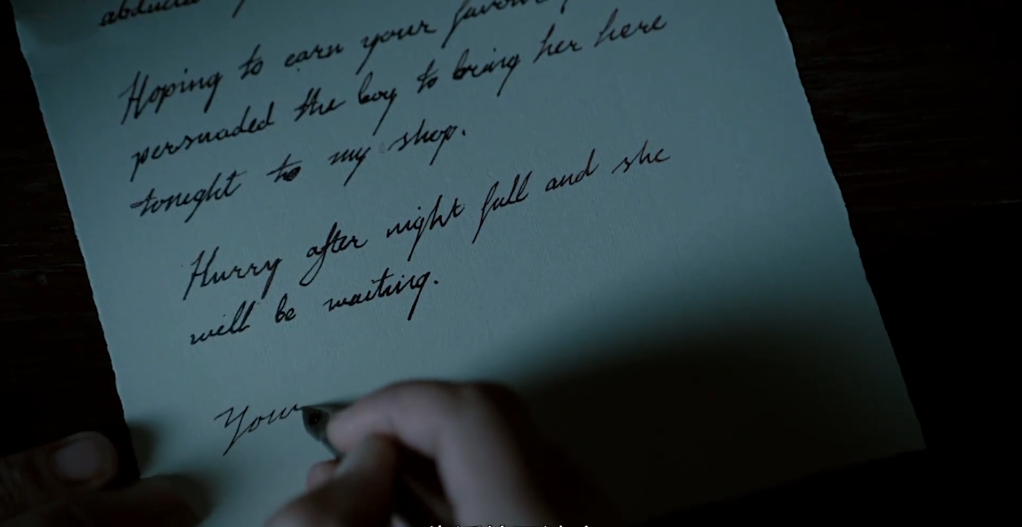 Hoping to earn your favour
persuaded the boy to bring her here
tonight to my shop.
Hurry after night fall and she
will be waiting.
Your